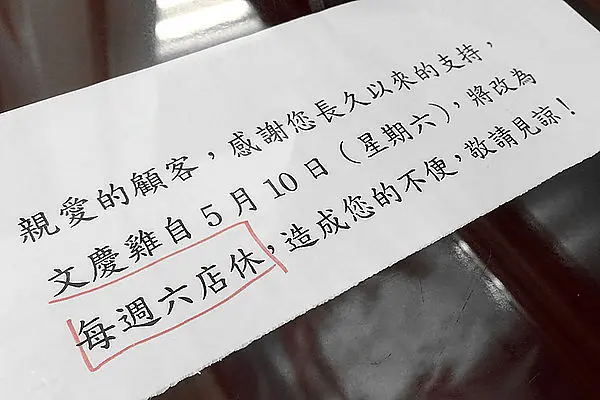 親愛的顧客，感謝您長久以來的支持，
文慶雞自5月10日（星期六），將改為
每週六店休，造成您的不便，敬請見諒！